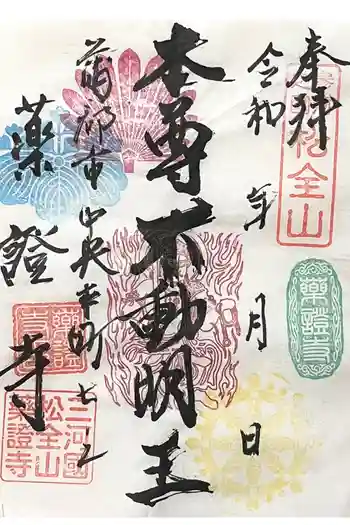 奉拝
令和 年 月 日
本尊不動明王
蒲郡市中央本町
薬證寺
松全山
薬證寺
薬證寺
三河國
松全山
薬證寺